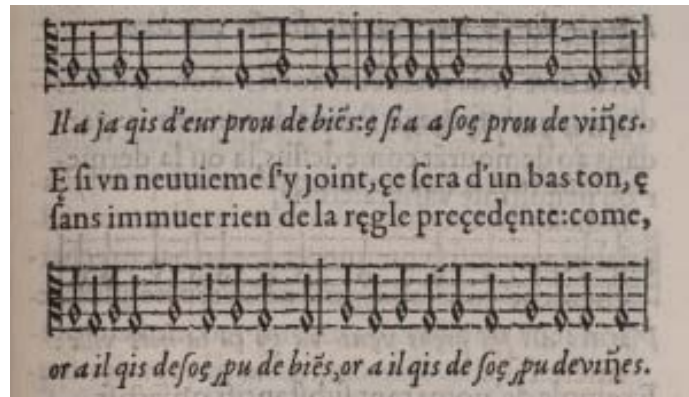 Il a ja qis d'eur prou de biẽs:ę ſi a a ſoę prou de viñes.
Ę ſi vn neuuieme ſ'y joint, çe ſera d'un bas ton, ę
ſans immuer rien de la ręgle preçedęnte:come,
or a il qis de ſoę ꝓu de biẽs, or a il qis de ſoę ꝓu de viñes.